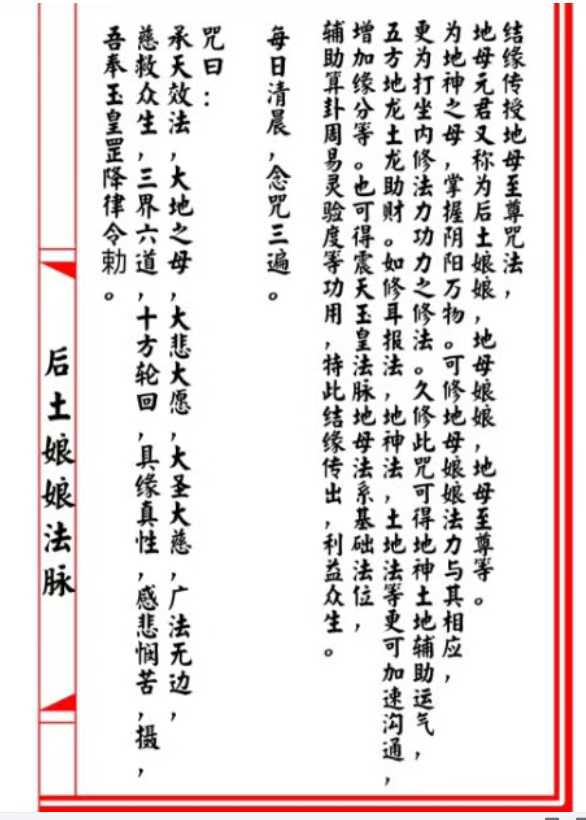 结缘传授地母至尊咒法，
地母元君又称为后土娘娘，地母娘娘，地母至尊等。
为地神之母，掌握阴阳万物。可修地母娘娘法力与其相应，
更为打坐内修法力功力之修法。久修此咒可得地神土地辅助运气，
五方地龙土龙助财。如修耳报法，地神法，土地法等更可加速沟通，
增加缘分等。也可得震天玉皇法脉地母法系基础法位，
辅助算卦周易灵验度等功用，特此结缘传出，利益众生。
每日清晨，念咒三遍。
咒曰：
承天效法，大地之母，大悲大愿，大圣大慈，广法无边，
慈救众生，三界六道，十方轮回，具缘真性，感悲悯苦，摄，
吾奉玉皇罡降律令勅。
后土娘娘法脉